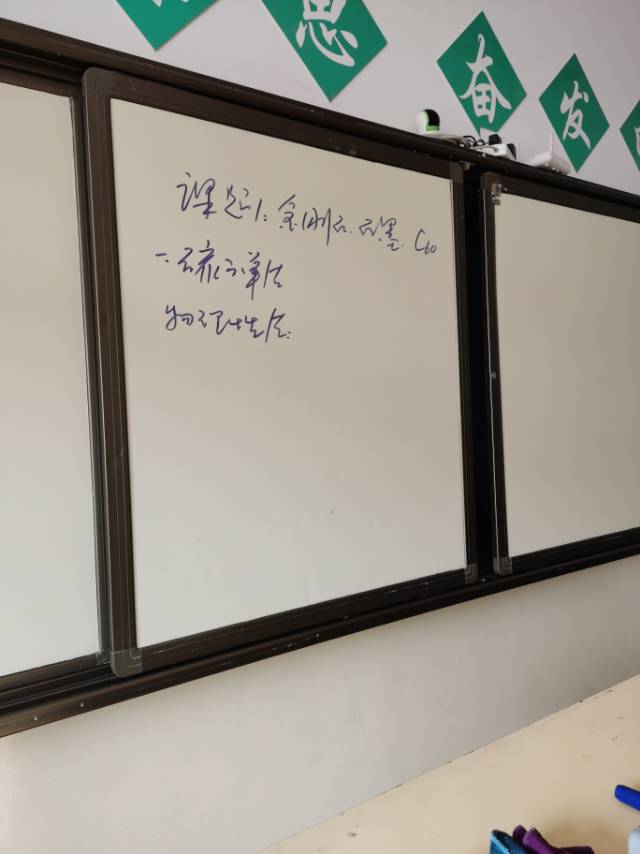 思
奋
发
课题1:金刚石.石墨.C60
一.碳的单质
物理性质: